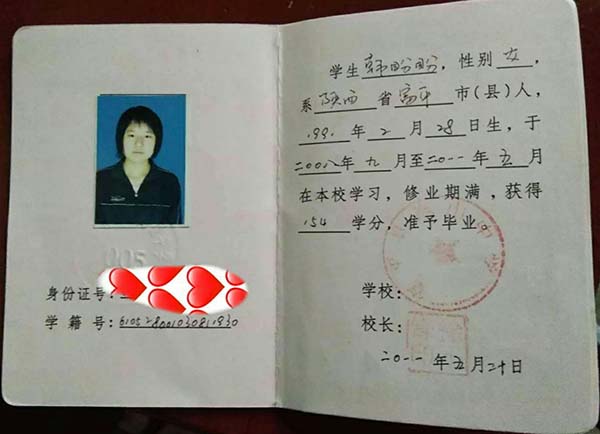 005
身份证号:
学籍号:610528001030811930
学生韩盼盼，性别女，
系陕西省富平市(县)人，
1991年2月28日生，于
二00八年九月至二0一一年五月
在本校学习，修业期满，获得
154学分，准予毕业。
学校:
校长:
二0一一年五月二十日